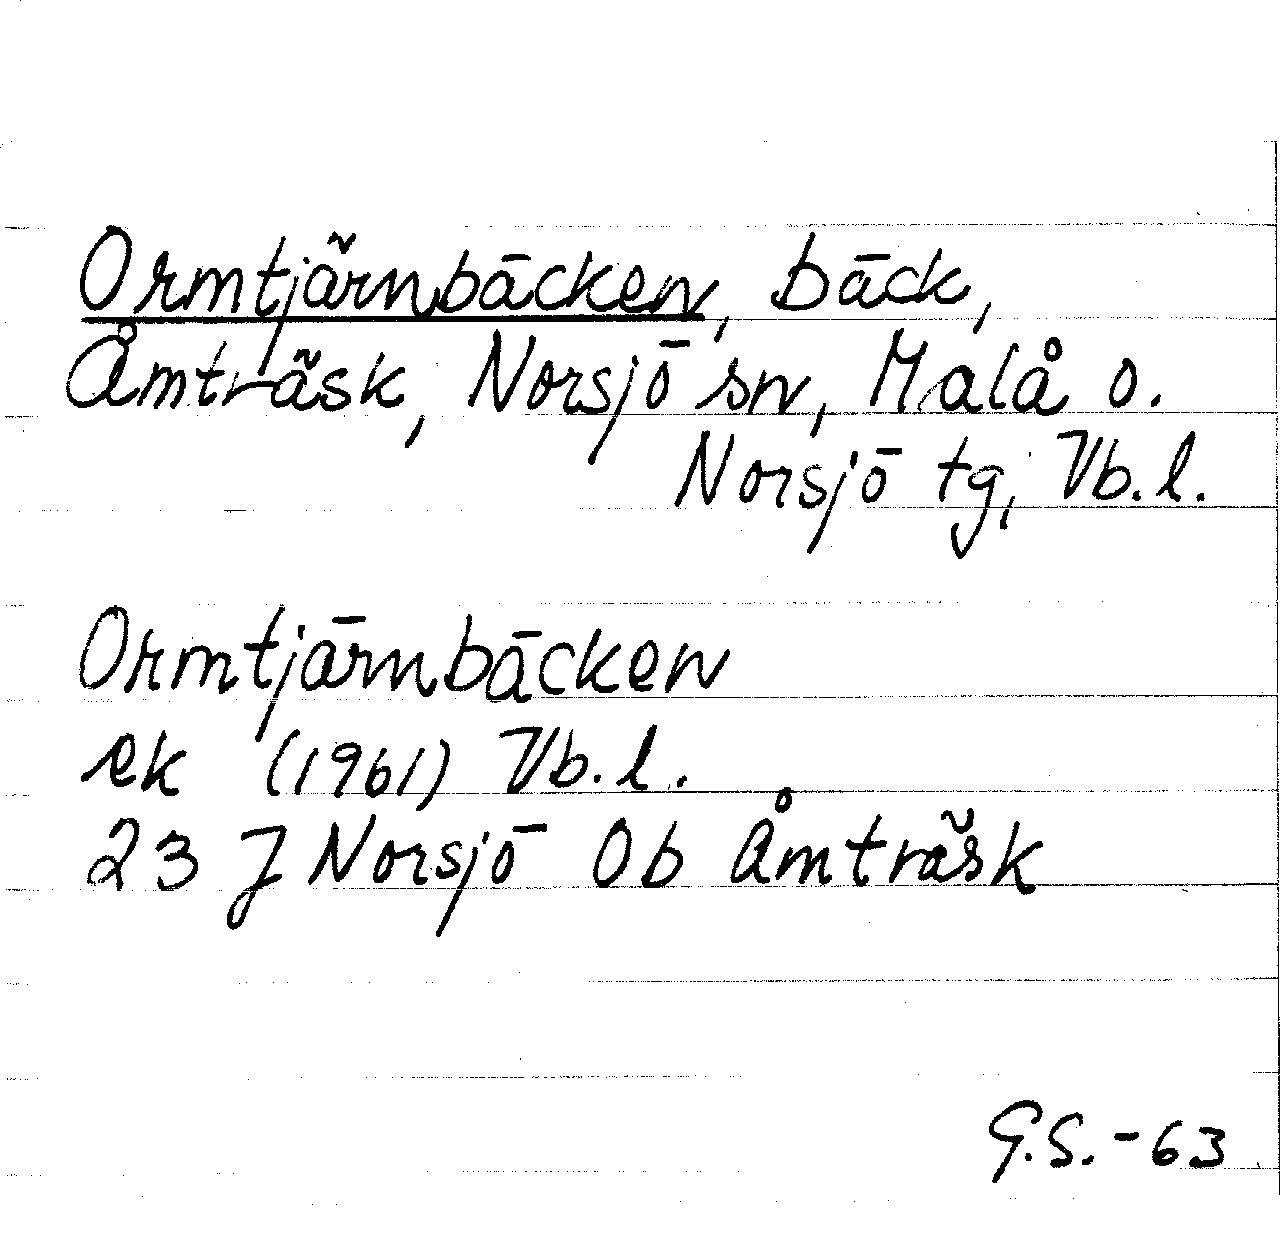 Ormtjärnbäcken, bäck,
Åmträsk, Norsjö sn, Malå o.
Norsjö tg, Vb.l.
Ormtjärnbäcken
ek (1961) Vb.l.
23 J Norsjö 0b Åmträsk
G.S.-63